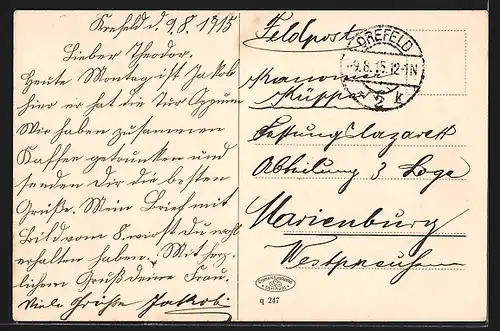 Krefeld d. 9.8.1915
Lieber Theodor.
Heute Montag ist Jakob
hier er hat die Tur
Wir haben zusammen
Kaffee getrunken und
senden Dir die besten
Grüße. Mein Brief mit
Bild vom 8. wirst Du wohl
erhalten haben. Mit herz-
lichem Gruß deine Frau.
Viele Grüße Jakob
Feldpost
CREFELD
-9.8.15.12-1N
* 2 k
Kanonier
Küpper
Festungslazarett
Abteilung 3 Loge
Marienburg
Westpreußen
q 247